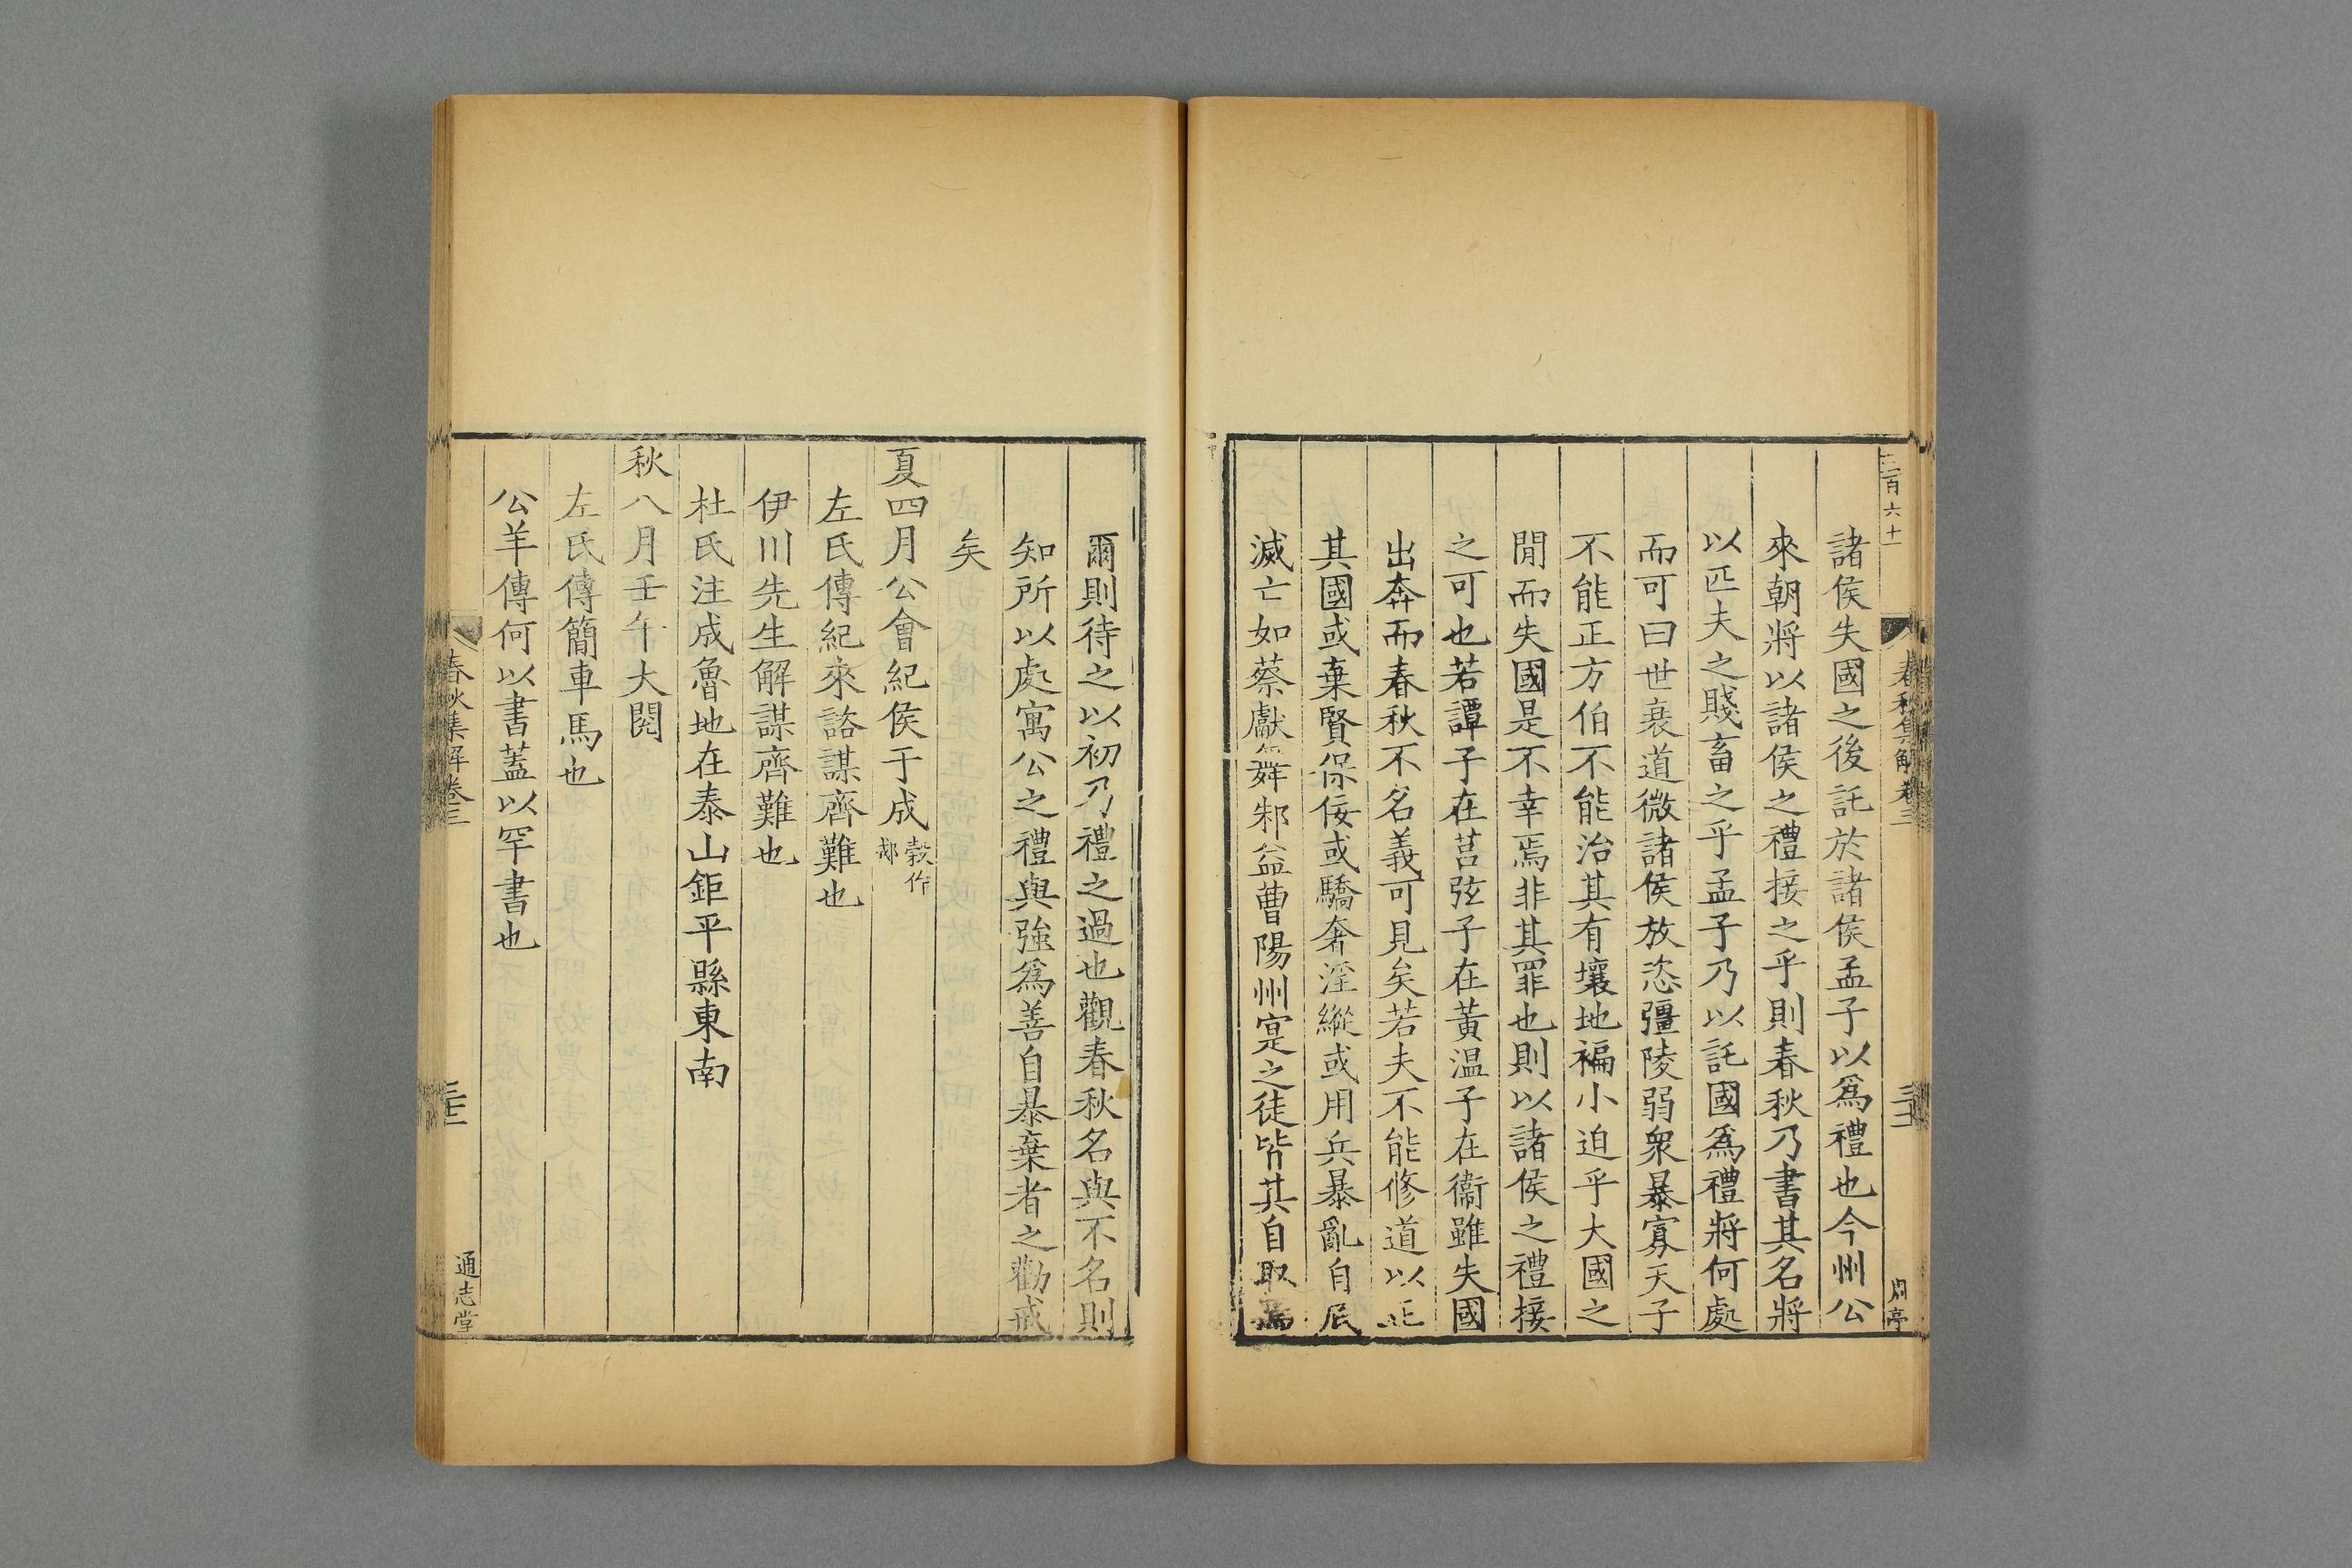 諸侯失國之後託於諸侯孟子以爲禮也今州公
來朝將以諸侯之禮接之乎則春秋乃書其名將
以匹夫之賤畜之乎孟子乃以託國爲禮將何處
而可曰世衰道微諸侯放恣彊陵弱衆暴寡天子
不能正方伯不能治其有壤地褊小迫乎大國之
閒而失國是不幸焉非其罪也則以諸侯之禮接
之可也若譚子在莒弦子在黃温子在衞雖失國
出奔而春秋不名義可見矣若夫不能修道以正
其國或棄賢保佞或驕奢淫縱或用兵暴亂自底
滅亡如蔡獻舞邾益曹陽州寔之徒皆其自取焉
春秋集解卷三
爾則待之以初乃禮之過也觀春秋名與不名則
知所以處寓公之禮與強爲善自暴棄者之勸戒
矣
夏四月公會紀侯于成穀作郕
左氏傳紀來諮謀齊難也
伊川先生解謀齊難也
杜氏注成魯地在泰山鉅平縣東南
秋八月壬午大閱
左氏傳簡車馬也
公羊傳何以書蓋以罕書也
春秋集解卷三
通志堂